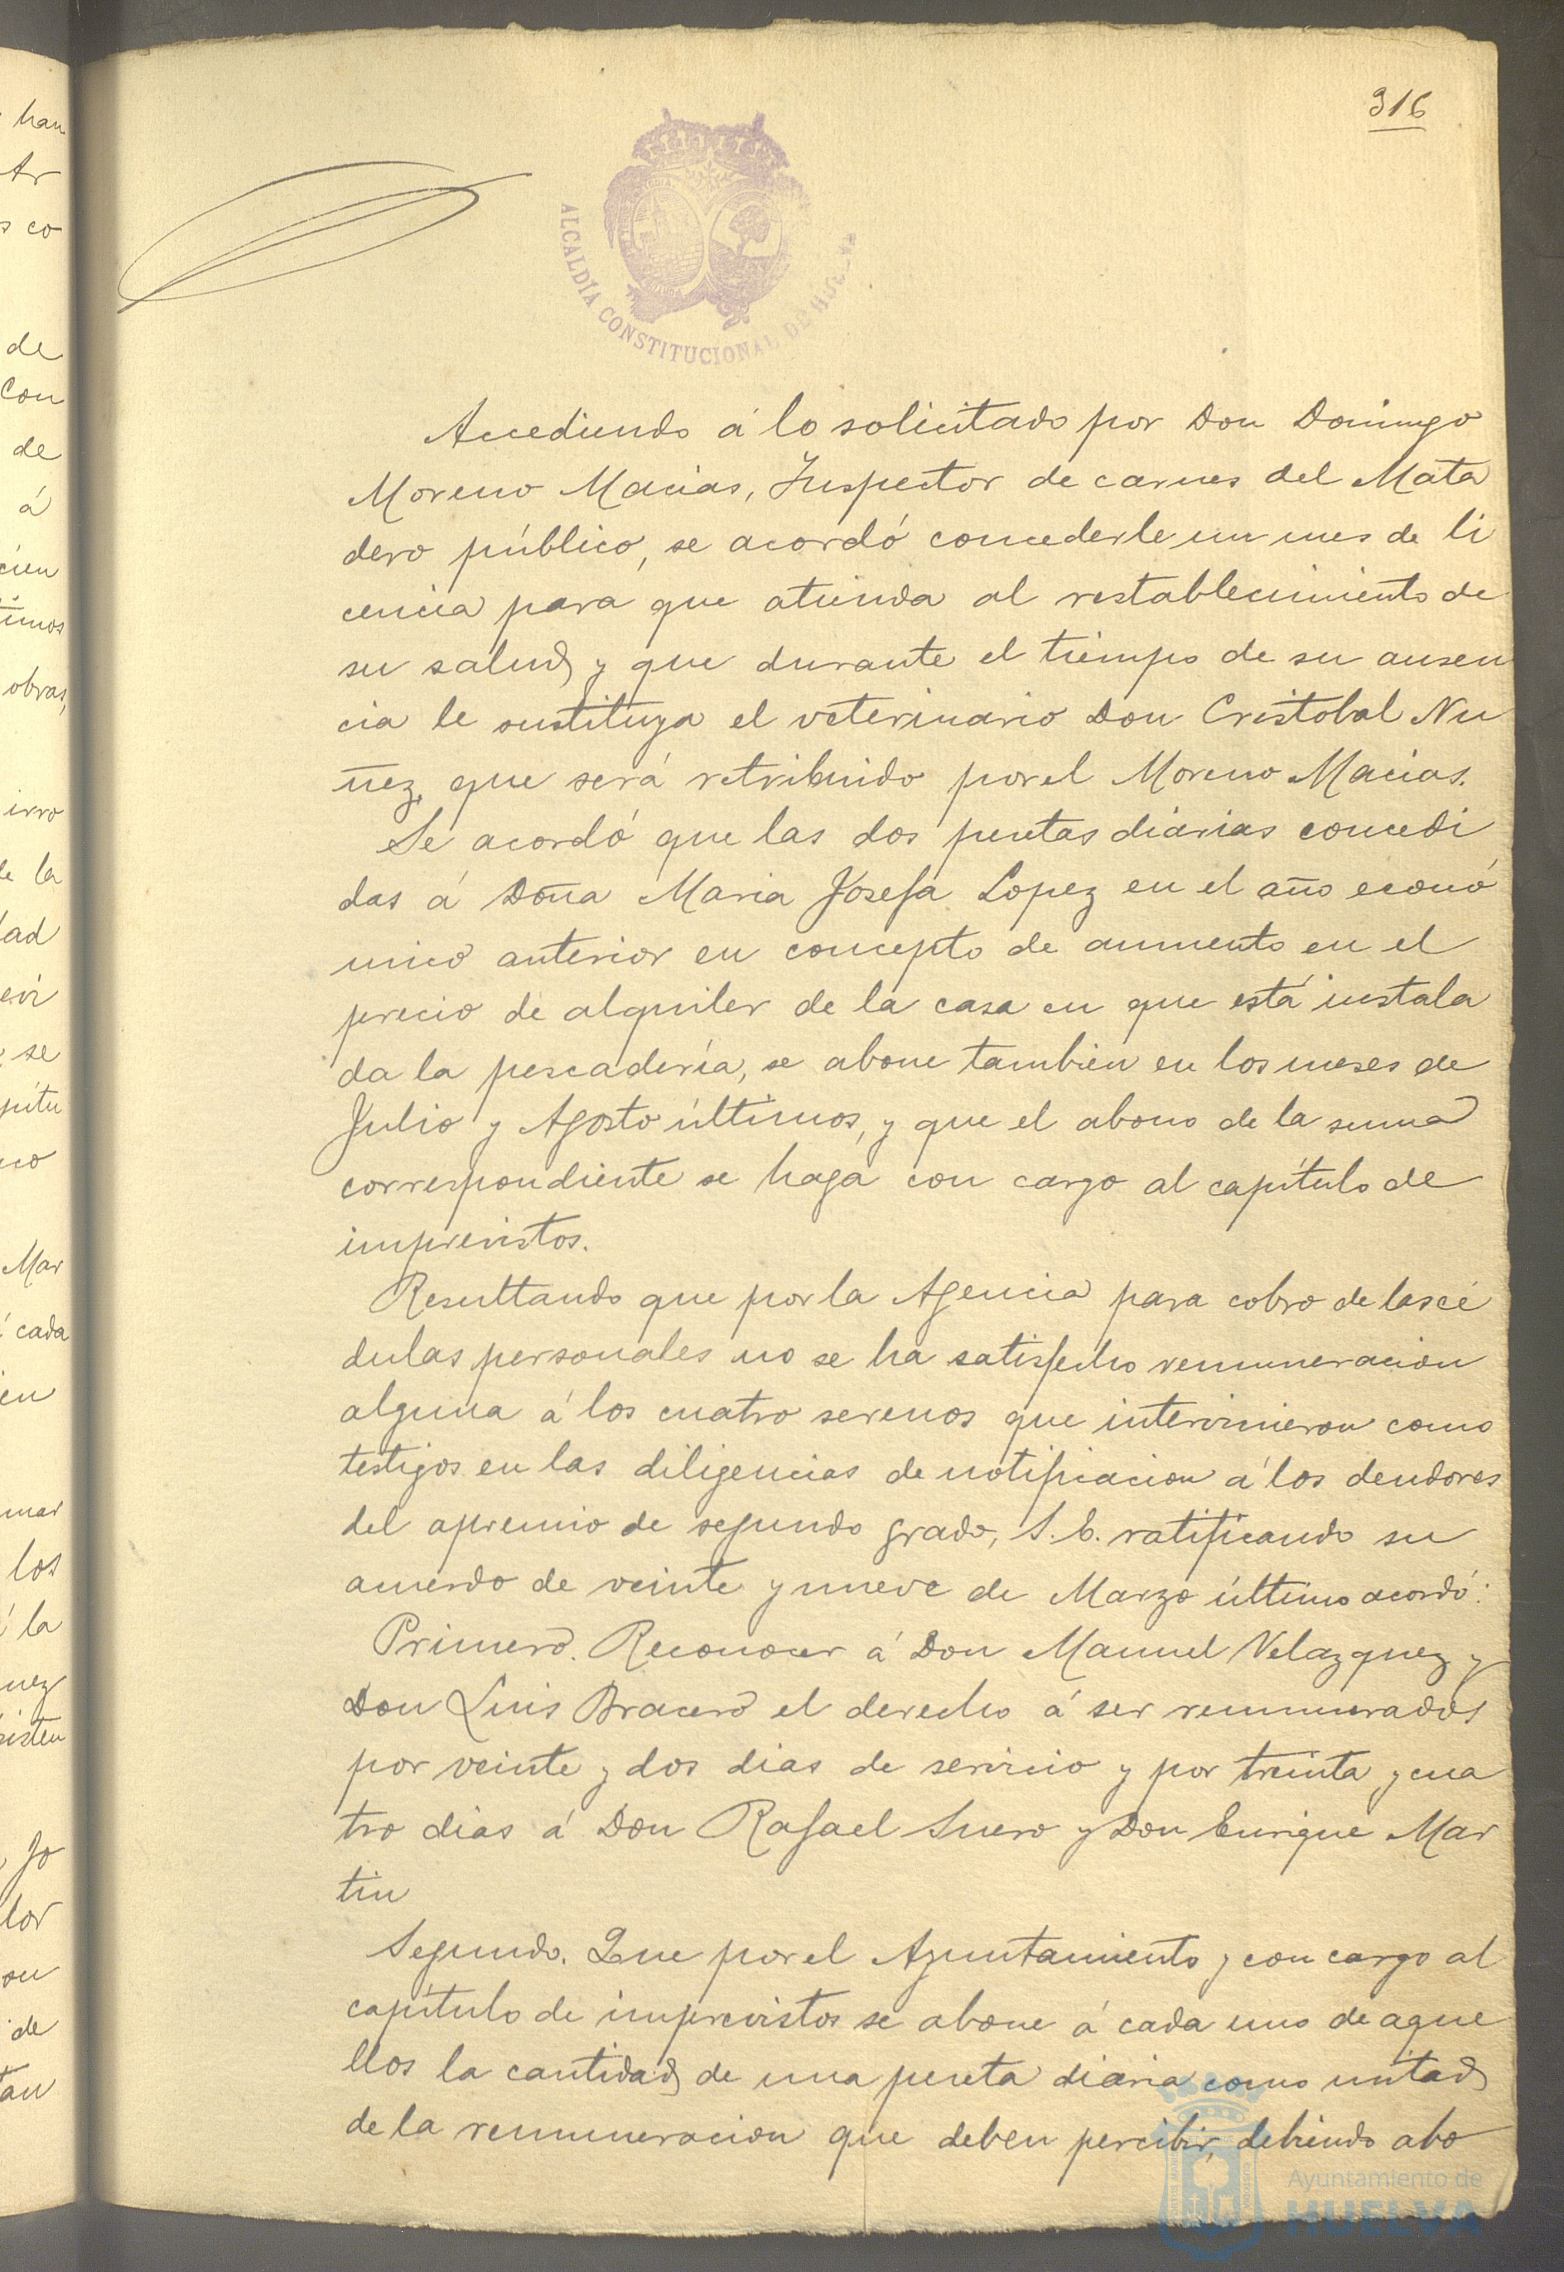 316
ALCALDÍA CONSTITUCIONAL DE HUELVA
Accediendo á lo solicitado por Don Domingo
Moreno Macias, Inspector de carnes del Mata
dero público, se acordó concederle un mes de li
cencia para que atienda al restablecimiento de
su salud, y que durante el tiempo de su ausen
cia le sustituya el veterinario Don Cristobal Nu
ñez, que será retribuido por el Moreno Macias.
Se acordó que las dos pesetas diarias concedi
das á Doña Maria Josefa Lopez en el año econó
mico anterior en concepto de aumento en el
precio de alquiler de la casa en que está instala
da la pescadería, se abone tambien en los meses de
Julio y Agosto últimos, y que el abono de la suma
correspondiente se haga con cargo al capítulo de
imprevistos.
Resultando que por la Agencia para cobro de las cé
dulas personales no se ha satisfecho remuneracion
alguna á los cuatro serenos que intervinieron como
testigos en las diligencias de notificacion á los deudores
del apremio de segundo grado, S. E. ratificando su
acuerdo de veinte y nueve de Marzo último acordó:
Primero. Reconocer á Don Manuel Velazquez y
Don Luis Bracero el derecho á ser remunerados
por veinte y dos dias de servicio y por treinta y cua
tro dias á Don Rafael Suero y Don Enrique Mar
tin
Segundo. Que por el Ayuntamiento y con cargo al
capítulo de imprevistos se abone á cada uno de aque
llos la cantidad de una peseta diaria como mitad
de la remuneracion que deben percibir, debiendo abo
Ayuntamiento de
HUELVA